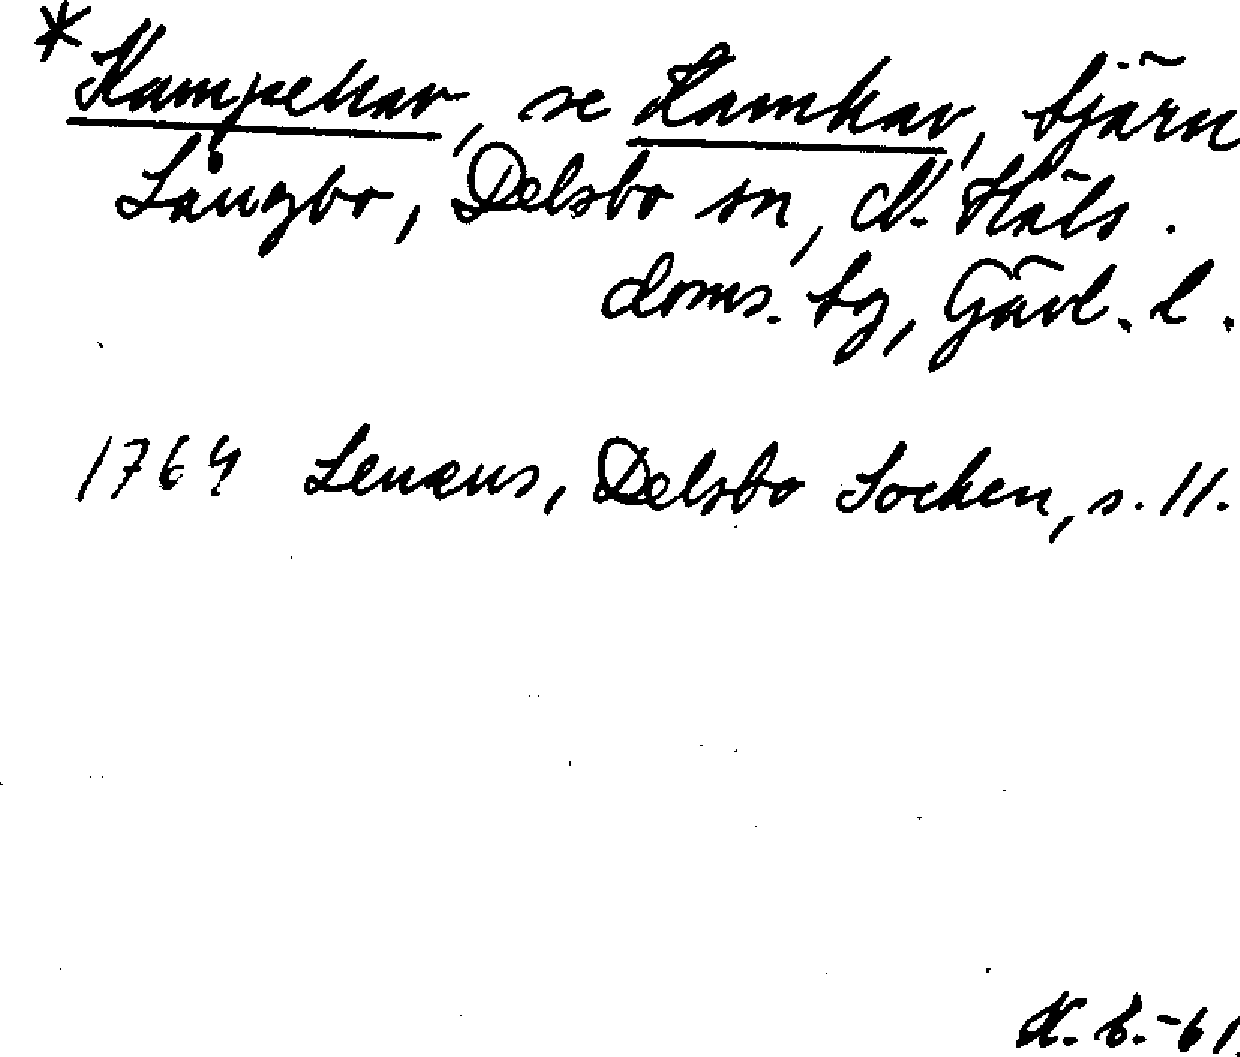 * Kampekav, se Kamkav, tjärn
Långbo, Delsbo sn, N. Häls.
doms. tg, Gävl. l.
1764 Lenæus, Delsbo Socken, s. 11.
K. B. -61.